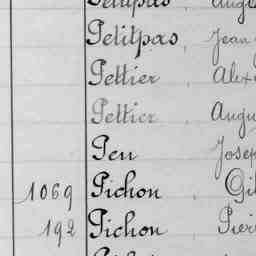 Petitpas, Jean
Pettier, Alex
Pettier, Augu
Peu Josep
1069 Pichon, Gil
192 Pichon, Pier